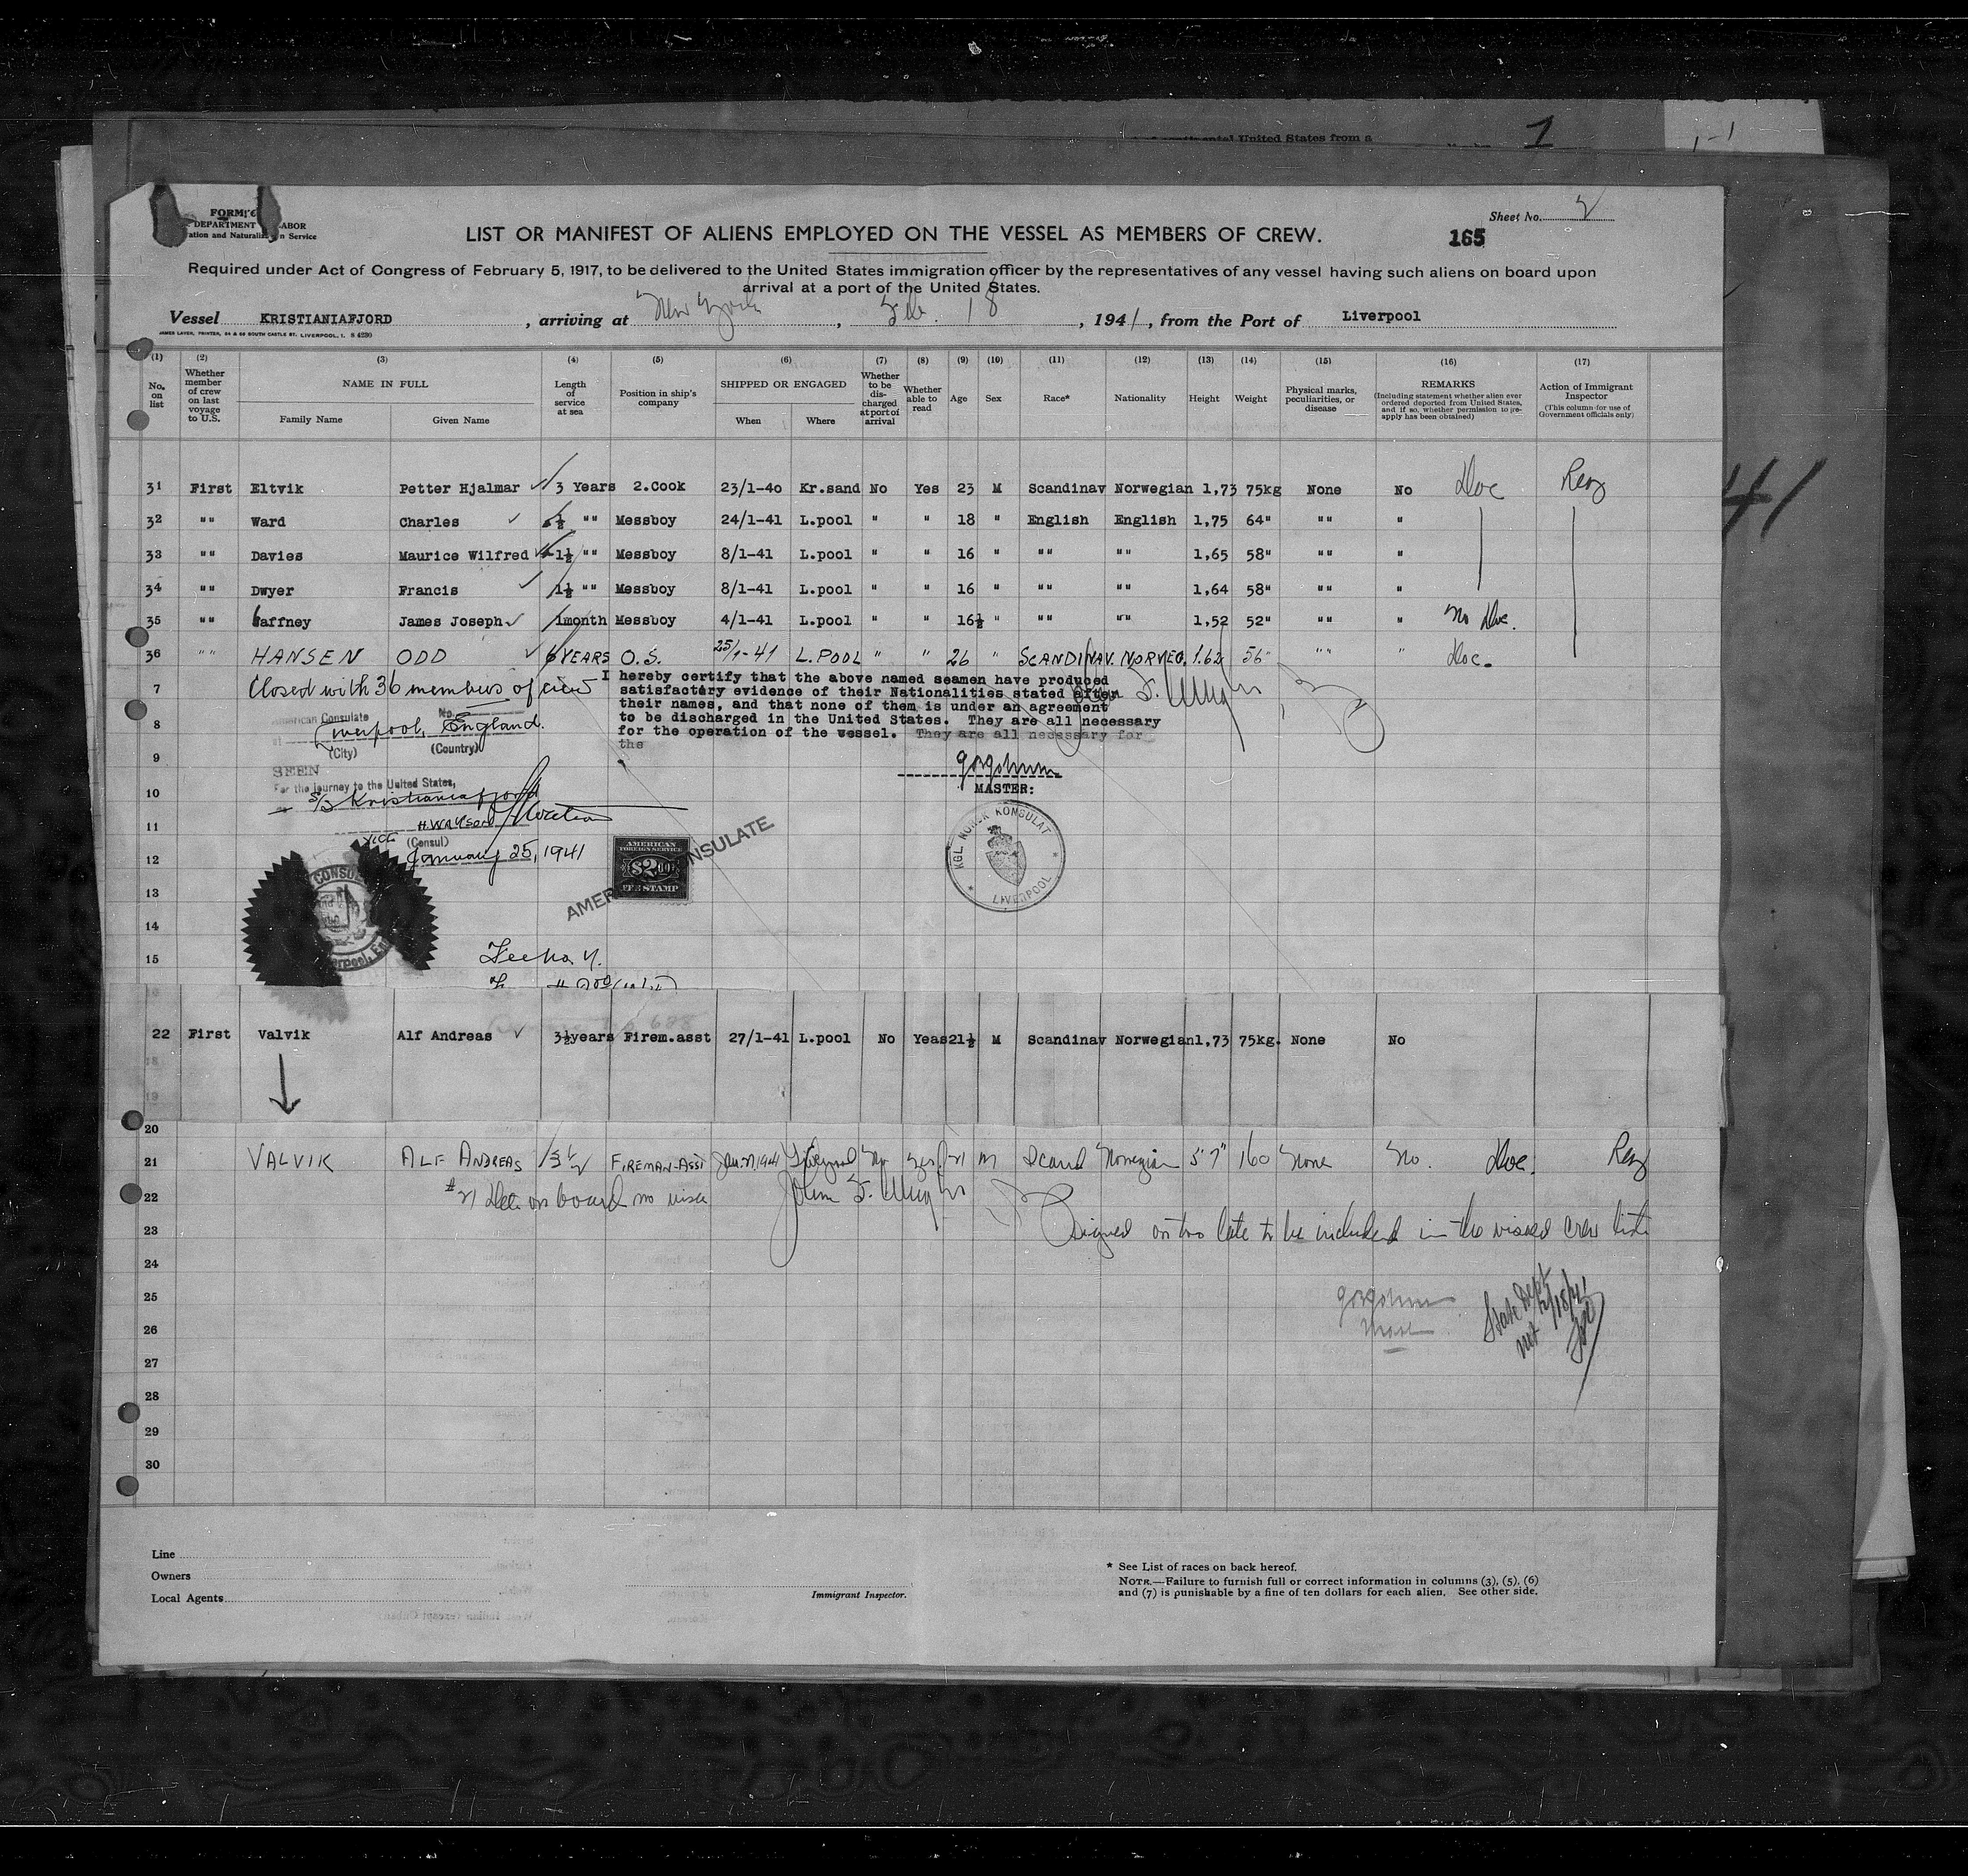 continental United States from a
1
1-1
41
FORM
DEPARTMENT LABOR
ration and Naturaliz n Service
Sheet No. 2
LIST OR MANIFEST OF ALIENS EMPLOYED ON THE VESSEL AS MEMBERS OF CREW.
165
Required under Act of Congress of February 5, 1917, to be delivered to the United States immigration officer by the representatives of any vessel having such aliens on board upon
arrival at a port of the United States.
Vessel KRISTIANIAFJORD , arriving at New York , Feb. 18 , 1941 , from the Port of Liverpool
JAMES LAVER, PRINTER, 64 & 66 SOUTH CASTLE ST. LIVERPOOL, 1. S 4230
(1) (2) (3) (4) (5) (6) (7) (8) (9) (10) (11) (12) (13) (14) (15) (16) (17)
No. on list
Whether member of crew on last voyage to U.S.
NAME IN FULL
Family Name
Given Name
Length of service at sea
Position in ship's company
SHIPPED OR ENGAGED
When
Where
Whether to be discharged at port of arrival
Whether able to read
Age
Sex
Race*
Nationality
Height
Weight
Physical marks, peculiarities, or disease
REMARKS
(Including statement whether alien ever ordered deported from United States, and if so, whether permission to re-apply has been obtained)
Action of Immigrant Inspector
(This column for use of Government officials only)
31 First Eltvik Petter Hjalmar 3 Years 2.Cook 23/1-40 Kr.sand No Yes 23 M Scandinav Norwegian 1,73 75kg None No Doc
32 "" Ward Charles ½ "" Messboy 24/1-41 L.pool " " 18 " English English 1,75 64" "" "
33 "" Davies Maurice Wilfred 1½ "" Messboy 8/1-41 L.pool " " 16 " "" "" 1,65 58" "" "
34 "" Dwyer Francis 1½ "" Messboy 8/1-41 L.pool " " 16 " "" "" 1,64 58" "" "
35 "" Gaffney James Joseph 1month Messboy 4/1-41 L.pool " " 16½ " "" "" 1,52 52" "" " No Doc.
36 "" HANSEN ODD 6 YEARS O.S. 25/1-41 L.POOL " " 26 " SCANDINAV. NORVEG. 1.62 56" "" " Doc.
7 Closed with 36 members of crew
I hereby certify that the above named seamen have produced
satisfactory evidence of their Nationalities stated after
their names, and that none of them is under an agreement
to be discharged in the United States. They are all necessary
for the operation of the vessel. They are all necessary for
the
American Consulate No.
8 at Liverpool, England.
(City) (Country)
9
SEEN
For the journey to the United States,
10 S/S Kristianiafjord
MASTER:
11 H. Watson
Vice (Consul)
12 January 25, 1941
AMERICAN FOREIGN SERVICE
$2.00
FEE STAMP
AMER NSULATE.
KGL. NORSK KONSULAT
LIVERPOOL
CONSUL
13
14
15
Fee No.
22 First Valvik Alf Andreas 3½years Firem.asst 27/1-41 L.pool No Yeas 21½ M Scandinav Norwegian 1,73 75kg. None No
18
19
20
21 VALVIK ALF ANDREAS 3½ FIREMAN-ASST Jan. 27, 1941 Liverpool No Yes 21 M Scand Norwegian 5'7" 160 None No. Doc.
22 #21 Doc on board no visa
23 Signed on too late to be included in the visaed crew list
24
25
State Dept
not 2/18/41
26
27
28
29
30
Line
Owners
Local Agents
Immigrant Inspector.
* See List of races on back hereof.
NOTE.—Failure to furnish full or correct information in columns (3), (5), (6)
and (7) is punishable by a fine of ten dollars for each alien. See other side.